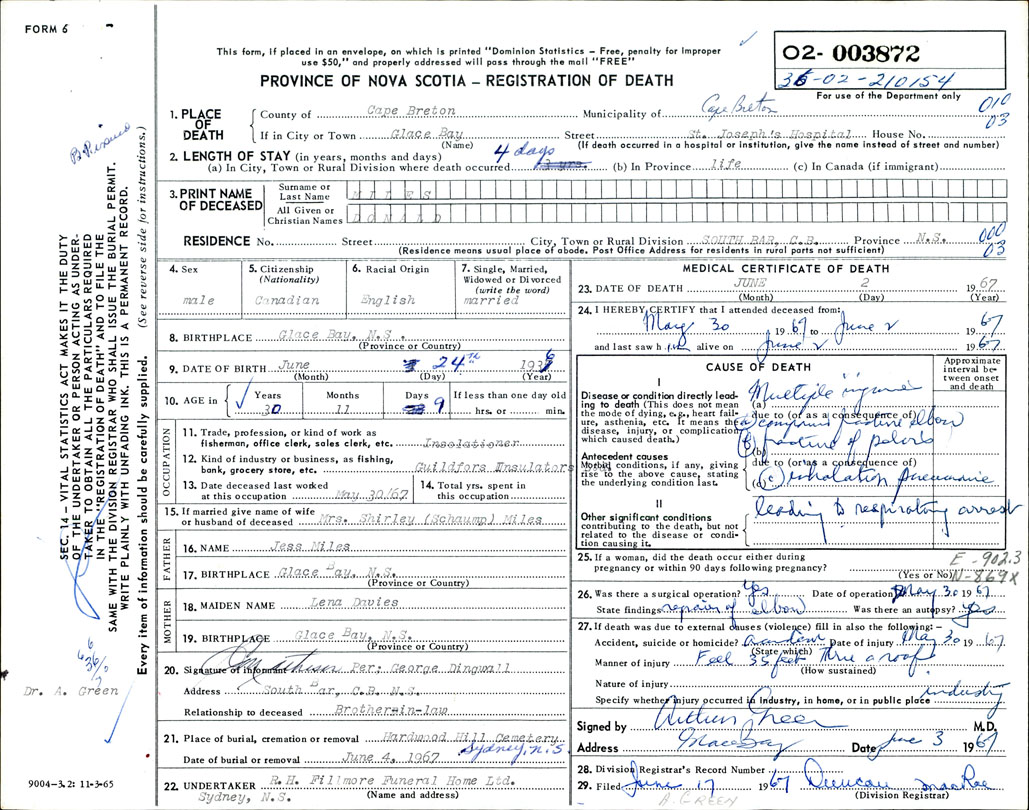 FORM 6
This form, if placed in an envelope, on which is printed "Dominion Statistics – Free, penalty for improper
use $50," and properly addressed will pass through the mail "FREE"
PROVINCE OF NOVA SCOTIA – REGISTRATION OF DEATH
02- 003872
36-02-210154
For use of the Department only
1. PLACE OF DEATH
County of Cape Breton Municipality of Cape Breton
010
03
If in City or Town Glace Bay Street St. Joseph's Hospital House No.
(Name) (If death occurred in a hospital or institution, give the name instead of street and number)
2. LENGTH OF STAY (in years, months and days) 4 days
(a) In City, Town or Rural Division where death occurred (b) In Province life (c) In Canada (if immigrant)
3. PRINT NAME OF DECEASED
Surname or Last Name MILES
All Given or Christian Names DONALD
RESIDENCE No. Street City, Town or Rural Division SOUTH BAR, C.B. Province N.S.
000
03
(Residence means usual place of abode. Post Office Address for residents in rural parts not sufficient)
4. Sex male
5. Citizenship (Nationality) Canadian
6. Racial Origin English
7. Single, Married, Widowed or Divorced (write the word) married
8. BIRTHPLACE Glace Bay, N.S.
(Province or Country)
9. DATE OF BIRTH June 24TH 1936
(Month) (Day) (Year)
10. AGE in Years 30 Months 11 Days 9 If less than one day old hrs. or min.
OCCUPATION
11. Trade, profession, or kind of work as
fisherman, office clerk, sales clerk, etc. Insolationer
12. Kind of industry or business, as fishing,
bank, grocery store, etc. Guildfors Unsulators
13. Date deceased last worked
at this occupation May 30/67
14. Total yrs. spent in
this occupation
15. If married give name of wife
or husband of deceased Mrs. Shirley (Schaump) Miles
FATHER
16. NAME Jess Miles
17. BIRTHPLACE Glace Bay, N.S.
(Province or Country)
MOTHER
18. MAIDEN NAME Lena Davies
19. BIRTHPLACE Glace Bay, N.S.
(Province or Country)
20. Signature of informant Per: George Dingwall
Address South Bar, C.B. N.S.
Relationship to deceased Brother-in-law
21. Place of burial, cremation or removal Hardwood Hill Cemetery
Sydney, N.S.
Date of burial or removal June 4, 1967
22. UNDERTAKER R.H. Fillmore Funeral Home Ltd.
Sydney, N.S. (Name and address)
MEDICAL CERTIFICATE OF DEATH
23. DATE OF DEATH JUNE 2 1967
(Month) (Day) (Year)
24. I HEREBY CERTIFY that I attended deceased from:
May 30 1967 to June 2 1967
and last saw him alive on June 2 1967
CAUSE OF DEATH
Approximate interval between onset and death
I
Disease or condition directly leading to death (This does not mean the mode of dying, e.g., heart failure, asthenia, etc. It means the disease, injury, or complication which caused death.)
(a) Multiple injuries
due to (or as a consequence of)
(a) compound fracture elbow
(b) fracture of pelvis
Antecedent causes
Morbid conditions, if any, giving rise to the above cause, stating the underlying condition last.
due to (or as a consequence of)
(c) inhalation pneumonia
II
Other significant conditions contributing to the death, but not related to the disease or condition causing it.
leading to respiratory arrest
25. If a woman, did the death occur either during
pregnancy or within 90 days following pregnancy? (Yes or No)
E-902.3
N-869X
26. Was there a surgical operation? Yes Date of operation May 30 1967
State findings repair of elbow Was there an autopsy? yes
27. If death was due to external causes (violence) fill in also the following:–
Accident, suicide or homicide? accident Date of injury May 30 1967
(State which)
Manner of injury Feel 35 feet thru a roof
(How sustained)
Nature of injury
Specify whether injury occurred in industry, in home, or in public place industry
Signed by Arthur Green M.D.
Address Glace Bay Date June 3 1967
28. Division Registrar's Record Number
29. Filed June 17 1967 Duncan MacRae
(Division Registrar)
A. GREEN
SEC. 14 – VITAL STATISTICS ACT MAKES IT THE DUTY
OF THE UNDERTAKER OR PERSON ACTING AS UNDER-
TAKER TO OBTAIN ALL THE PARTICULARS REQUIRED
IN THE "REGISTRATION OF DEATH" AND TO FILE THE
SAME WITH THE DIVISION REGISTRAR WHO SHALL ISSUE THE BURIAL PERMIT.
WRITE PLAINLY WITH UNFADING INK. THIS IS A PERMANENT RECORD.
Every item of information should be carefully supplied. (See reverse side for instructions.)
Dr. A. Green
9004-3.2: 11-3-65